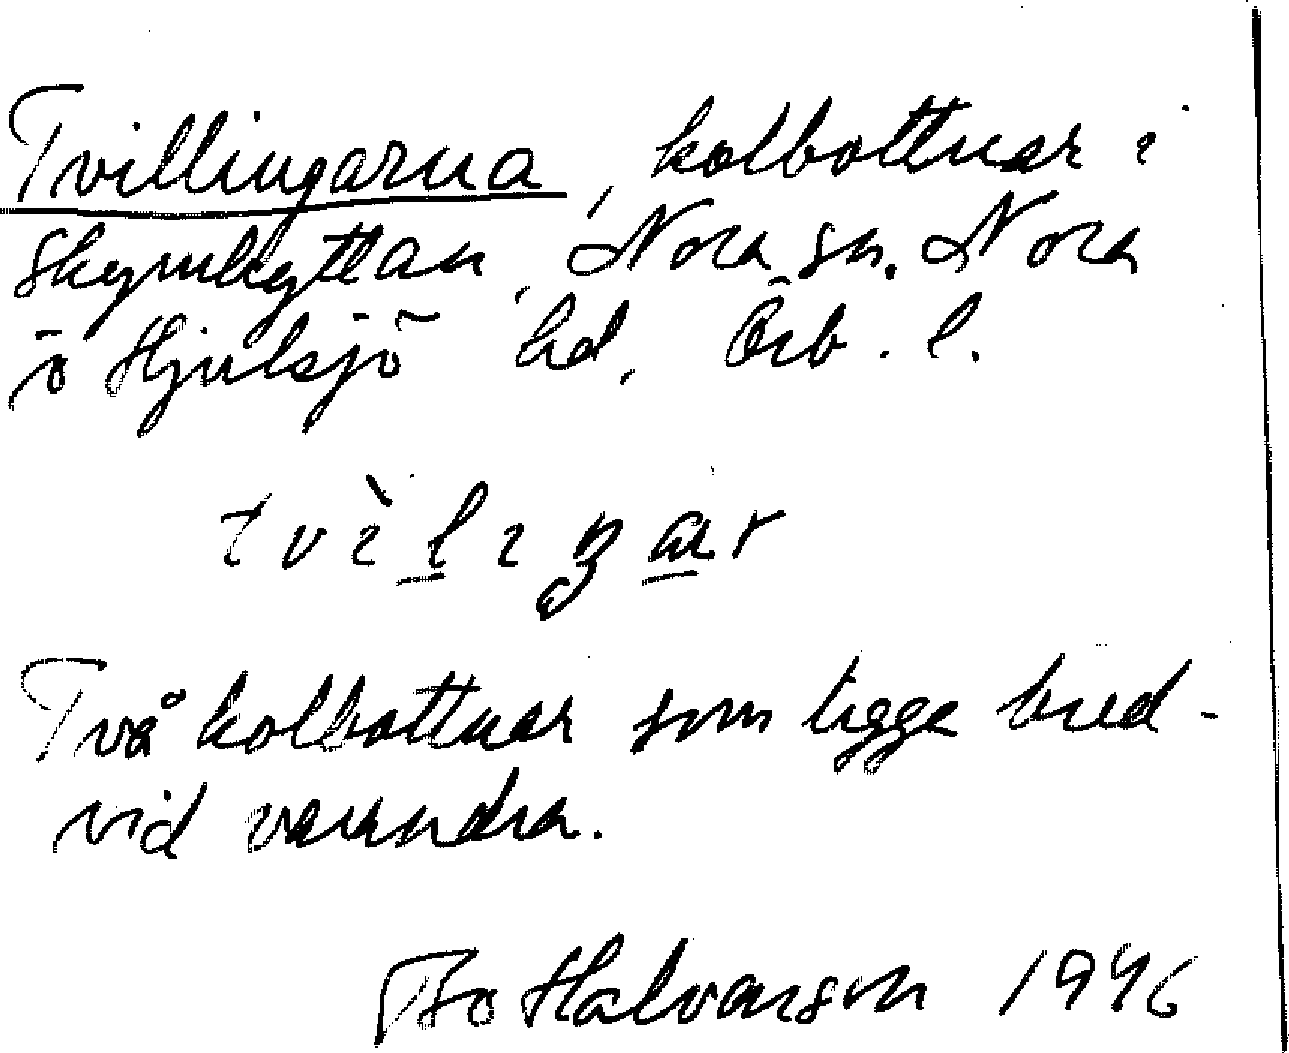 Tvillingarna, kolbottnar i
Skymhyttan, Nora sn. Nora
o Hjulsjö hd, Örb. l.
Två kolbottnar som ligga bred-
vid varandra.
Bo Halvarson 1946